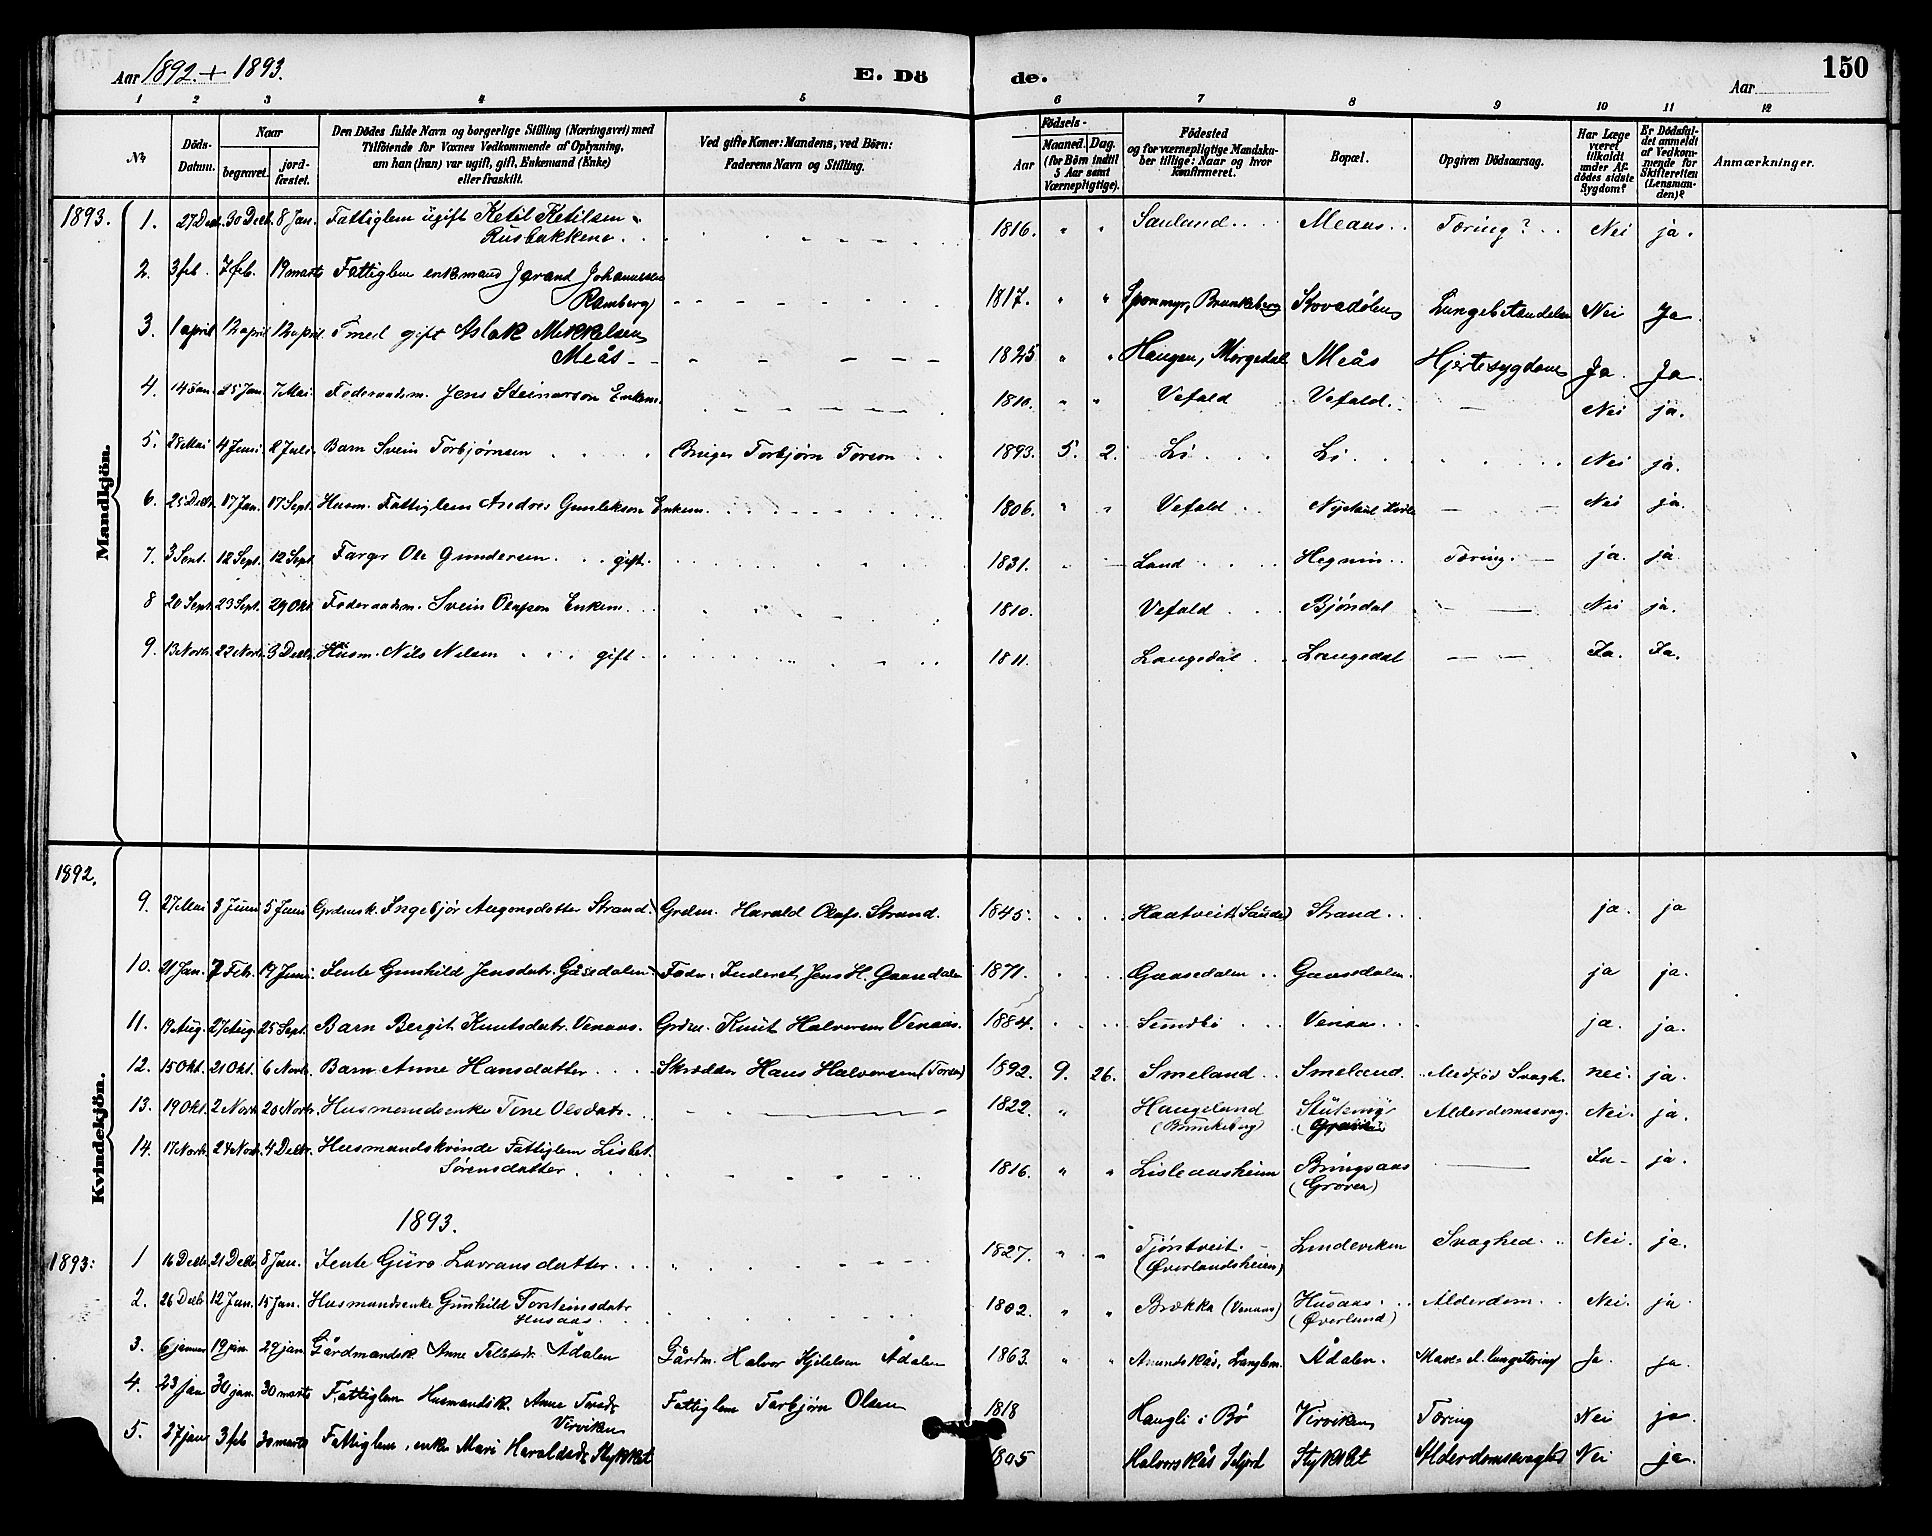 Aar 1892. + 1893.
E. Dö
de.
Aar
150
1 2 3 4 5 6 7 8 9 10 11 12
Nr.
Döds-Datum.
Naar
begravet.
jordfæstet.
Den Dödes fulde Navn og borgerlige Stilling (Næringsvei) med
Tilföiende for Voxnes Vedkommende af Oplysning,
om han (hun) var ugift, gift, Enkemand (Enke)
eller fraskilt.
Ved gifte Koner: Mandens, ved Börn:
Faderens Navn og Stilling.
Födsels-
Aar
Maaned. Dag.
(for Börn indtil
5 Aar samt
Værnepligtige).
Födested
og for værnepligtige Mandska-
ber tillige: Naar og hvor
konfirmeret.
Bopæl.
Opgiven Dödsaarsag.
Har Læge
været
tilkaldt
under Af-
dödes sidste
Sygdom?
Er Dödsfal-
det anmeldt
af Vedkom-
mende for
Skifteretten
(Lensman-
den)?
Anmærkninger.
Mandkjön.
1893. 1. 27 Decb. 30 Decb. 8 Jan. Fattiglem ugift Ketil Ketilsen 1816. " " Sauland Meaas Tæring? Nei ja.
Rusbakkene
2. 3 feb. 7 feb. 19 marts Fattiglem enkemand Jørand Johannessen
Ramberg 1817. " " Sponmyr, Brunkeberg Lungebetændelse Nei Ja
3. 1 april 12 april 12 april gift Aslak Mikkelsen
Meås 1825 " " Haugen, Morgedal Meås Hjertesygdom Ja Ja
4. 14 Jan. 25 Jan. 7 Mai Föderaadsm. Jens Steinarson Enkem. 1810. " " Vefald Vefald. Nei ja.
5. 28 Mai 4 Juni 2 Juli Barn Svein Torbjørnsen Bruger Torbjørn Torson 1893. 5. 2. Li Li Nei ja.
6. 25 Decb. 17 Jan. 17 Sept. Husm. Fattiglem Andres Gunlekson Enkem. 1806. " " Vefald Nystaul Nei ja.
7. 3 Sept. 12 Sept. 12 Sept. Farger Ole Gundersen gift. 1831. Land Hegnin Tæring. ja. ja
8 20 Sept. 23 Sept. 29 Okt. Föderaadsm. Svein Olafson Enkem. 1810. Vefald Bjöndal Nei ja.
9. 13 Novbr. 22 Novbr. 3 Decbr. Husm. Nils Nilsen gift 1811. Langedal Langedal Ja. Ja.
Kvindekjön.
1892.
9. 27 Mai 3 Juni 5 Juni Grdmsk. Ingebjör Augonsdatter Strand. Grdm. Harald Olafs. Strand. 1845. Haatveit (Saude) Strand ja. ja
10. 21 Jan. 7 Feb. 19 Juni Jente Gunhild Jensdatr. Gåsedalen Fader: Inderst Jens H. Gaasedalen 1871. Gaasedalen Gaasedalen. ja ja.
11. 19 Aug. 27 Aug. 25 Sept. Barn Bergit Knutsdatr. Venaas. Grdm. Knut Halvorsen Venaas. 1884. Sundbö Venaas ja. ja.
12. 15 Okt. 21 Okt. 6 Novbr. Barn Anne Hansdatter Skrædder Hans Halvorsen (Torson) 1892. 9. 26. Smeland Smeland. Medföd Svagh. nei. ja.
13. 19 Okt. 2 Novbr. 20 Novbr. Husmandsenke Tone Olsdatr. 1822. " Haugeland Alderdomssvag. Nei. ja.
(Brunkeberg)
14. 17 Novbr. 24 Novbr. 4 Decbr. Husmandskvinde Fattiglem Lisbet
Sörensdatter 1816. " " Lisleaasheim Bringsaas Ja - ja.
(Groven)
1893.
1893: 1 16 Decbr. 21 Decbr. 8 Jan. Jente Guro Lavransdatter 1827. " " Tjöntveit. Lindeviken Svaghed. Nei. ja.
(Överlandsheien)
2. 26 Decb. 12 Jan. 15 Jan. Husmandsenke Gunhild Torsteinsdatr
Husaas 1802. " " Brække (Venaas) Husaas Alderdom Nei. ja
(Överlund)
3. 6 januar 19 jan. 29 jan. Gårdmandsk. Anne Tellefsdr. Ådalen Gårdm. Halvor Kjetilsen Ådalen 1863. " " Ådalen. Mave- & lungetæring Ja. ja.
4. 23 jan 30 jan. 30 marts Fattiglem Husmandsk. Anne Fattiglem Torbjørn Olsen 1818 Haugli i Bø Virviken Tæring Nei ja
Virviken
5. 27 jan 3 feb 30 marts Fattiglem, enke Mari Haraldsdr Stykket 1805 Halvorskås Seljord Stykket Alderdomssvaghed Nei ja.